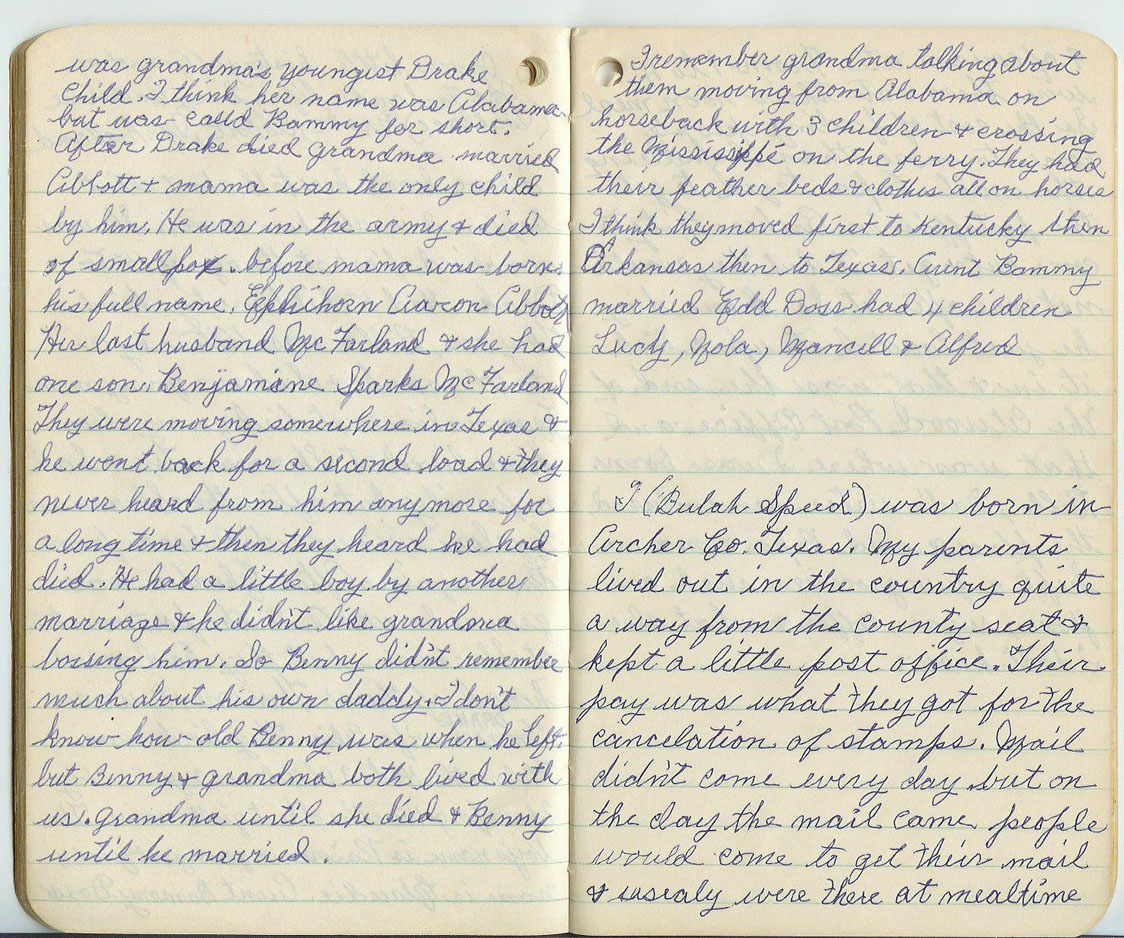 was grandma's youngist Drake
child. I think her name was Alabama
but was calld Bammy for short.
After Drake died grandma married
Abbott & mama was the only child
by him. He was in the army & died
of smallpox. before mama was born.
his full name. Ephihorn Aaron Abbott
Her last husband McFarland & she had
one son. Benjamine Sparks McFarland
They were moving somewhere in Texas &
he went back for a second load & they
never heard from him anymore for
a long time & then they heard he had
died. He had a little boy by another
marriage & he didn't like grandma
bossing him. So Benny didn't remember
much about his own daddy. I don't
know how old Benny was when he left.
but Benny & grandma both lived with
us. grandma until she died & Benny
until he married.
I remember grandma talking about
them moving from Alabama on
horseback with 3 children & crossing
the Mississippi on the ferry. They had
their feather beds & clothes all on horses
I think they moved first to Kentucky then
Arkansas then to Texas. Aunt Bammy
married Edd Doss had 4 children
Lucy, Nola, Mancell & Alfred
I (Bulah Speed) was born in
Archer Co. Texas. My parents
lived out in the country quite
a way from the county seat &
kept a little post office. Their
pay was what they got for the
cancelation of stamps. Mail
didn't come every day but on
the day the mail came people
would come to get their mail
& usualy were there at mealtime